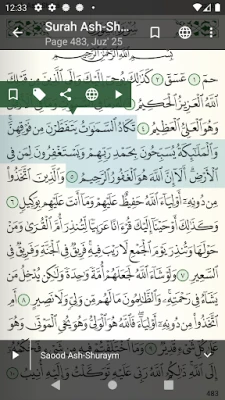 12:33
Surah Ash-Sh...
Page 483, Juz' 25
بِسْمِ ٱللَّهِ ٱلرَّحْمَٰنِ ٱلرَّحِيمِ
حمٓ ١ عٓسٓقٓ ٢ كَذَٰلِكَ يُوحِىٓ إِلَيْكَ وَإِلَى ٱلَّذِينَ مِن قَبْلِكَ
ٱللَّهُ ٱلْعَزِيزُ ٱلْحَكِيمُ
وَهُوَ ٱلْعَلِىُّ ٱلْعَظِيمُ ٤ تَكَادُ ٱلسَّمَٰوَٰتُ يَتَفَطَّرْنَ مِن فَوْقِهِنَّ
وَٱلْمَلَٰٓئِكَةُ يُسَبِّحُونَ بِحَمْدِ رَبِّهِمْ وَيَسْتَغْفِرُونَ لِمَن فِى
ٱلْأَرْضِ أَلَآ إِنَّ ٱللَّهَ هُوَ ٱلْغَفُورُ ٱلرَّحِيمُ ٥ وَٱلَّذِينَ ٱتَّخَذُوا۟
مِن دُونِهِۦٓ أَوْلِيَآءَ ٱللَّهُ حَفِيظٌ عَلَيْهِمْ وَمَآ أَنتَ عَلَيْهِم بِوَكِيلٍ ٦
وَكَذَٰلِكَ أَوْحَيْنَآ إِلَيْكَ قُرْءَانًا عَرَبِيًّا لِّتُنذِرَ أُمَّ ٱلْقُرَىٰ وَمَنْ
حَوْلَهَا وَتُنذِرَ يَوْمَ ٱلْجَمْعِ لَا رَيْبَ فِيهِ فَرِيقٌ فِى ٱلْجَنَّةِ وَفَرِيقٌ فِى
ٱلسَّعِيرِ ٧ وَلَوْ شَآءَ ٱللَّهُ لَجَعَلَهُمْ أُمَّةً وَٰحِدَةً وَلَٰكِن يُدْخِلُ مَن
يَشَآءُ فِى رَحْمَتِهِۦ وَٱلظَّٰلِمُونَ مَا لَهُم مِّن وَلِىٍّ وَلَا نَصِيرٍ ٨ أَمِ
ٱتَّخَذُوا۟ مِن دُونِهِۦٓ أَوْلِيَآءَ فَٱللَّهُ هُوَ ٱلْوَلِىُّ وَهُوَ يُحْىِ ٱلْمَوْتَىٰ وَهُوَ
عَلَىٰ كُلِّ شَىْءٍ قَدِيرٌ ٩ وَمَا ٱخْتَلَفْتُمْ فِيهِ مِن شَىْءٍ فَحُكْمُهُۥٓ
Saood Ash-Shuraym
إِلَى ٱللَّهِ ذَٰلِكُمُ ٱللَّهُ رَبِّى عَلَيْهِ تَوَكَّلْتُ وَإِلَيْهِ أُنِيبُ ١٠
483